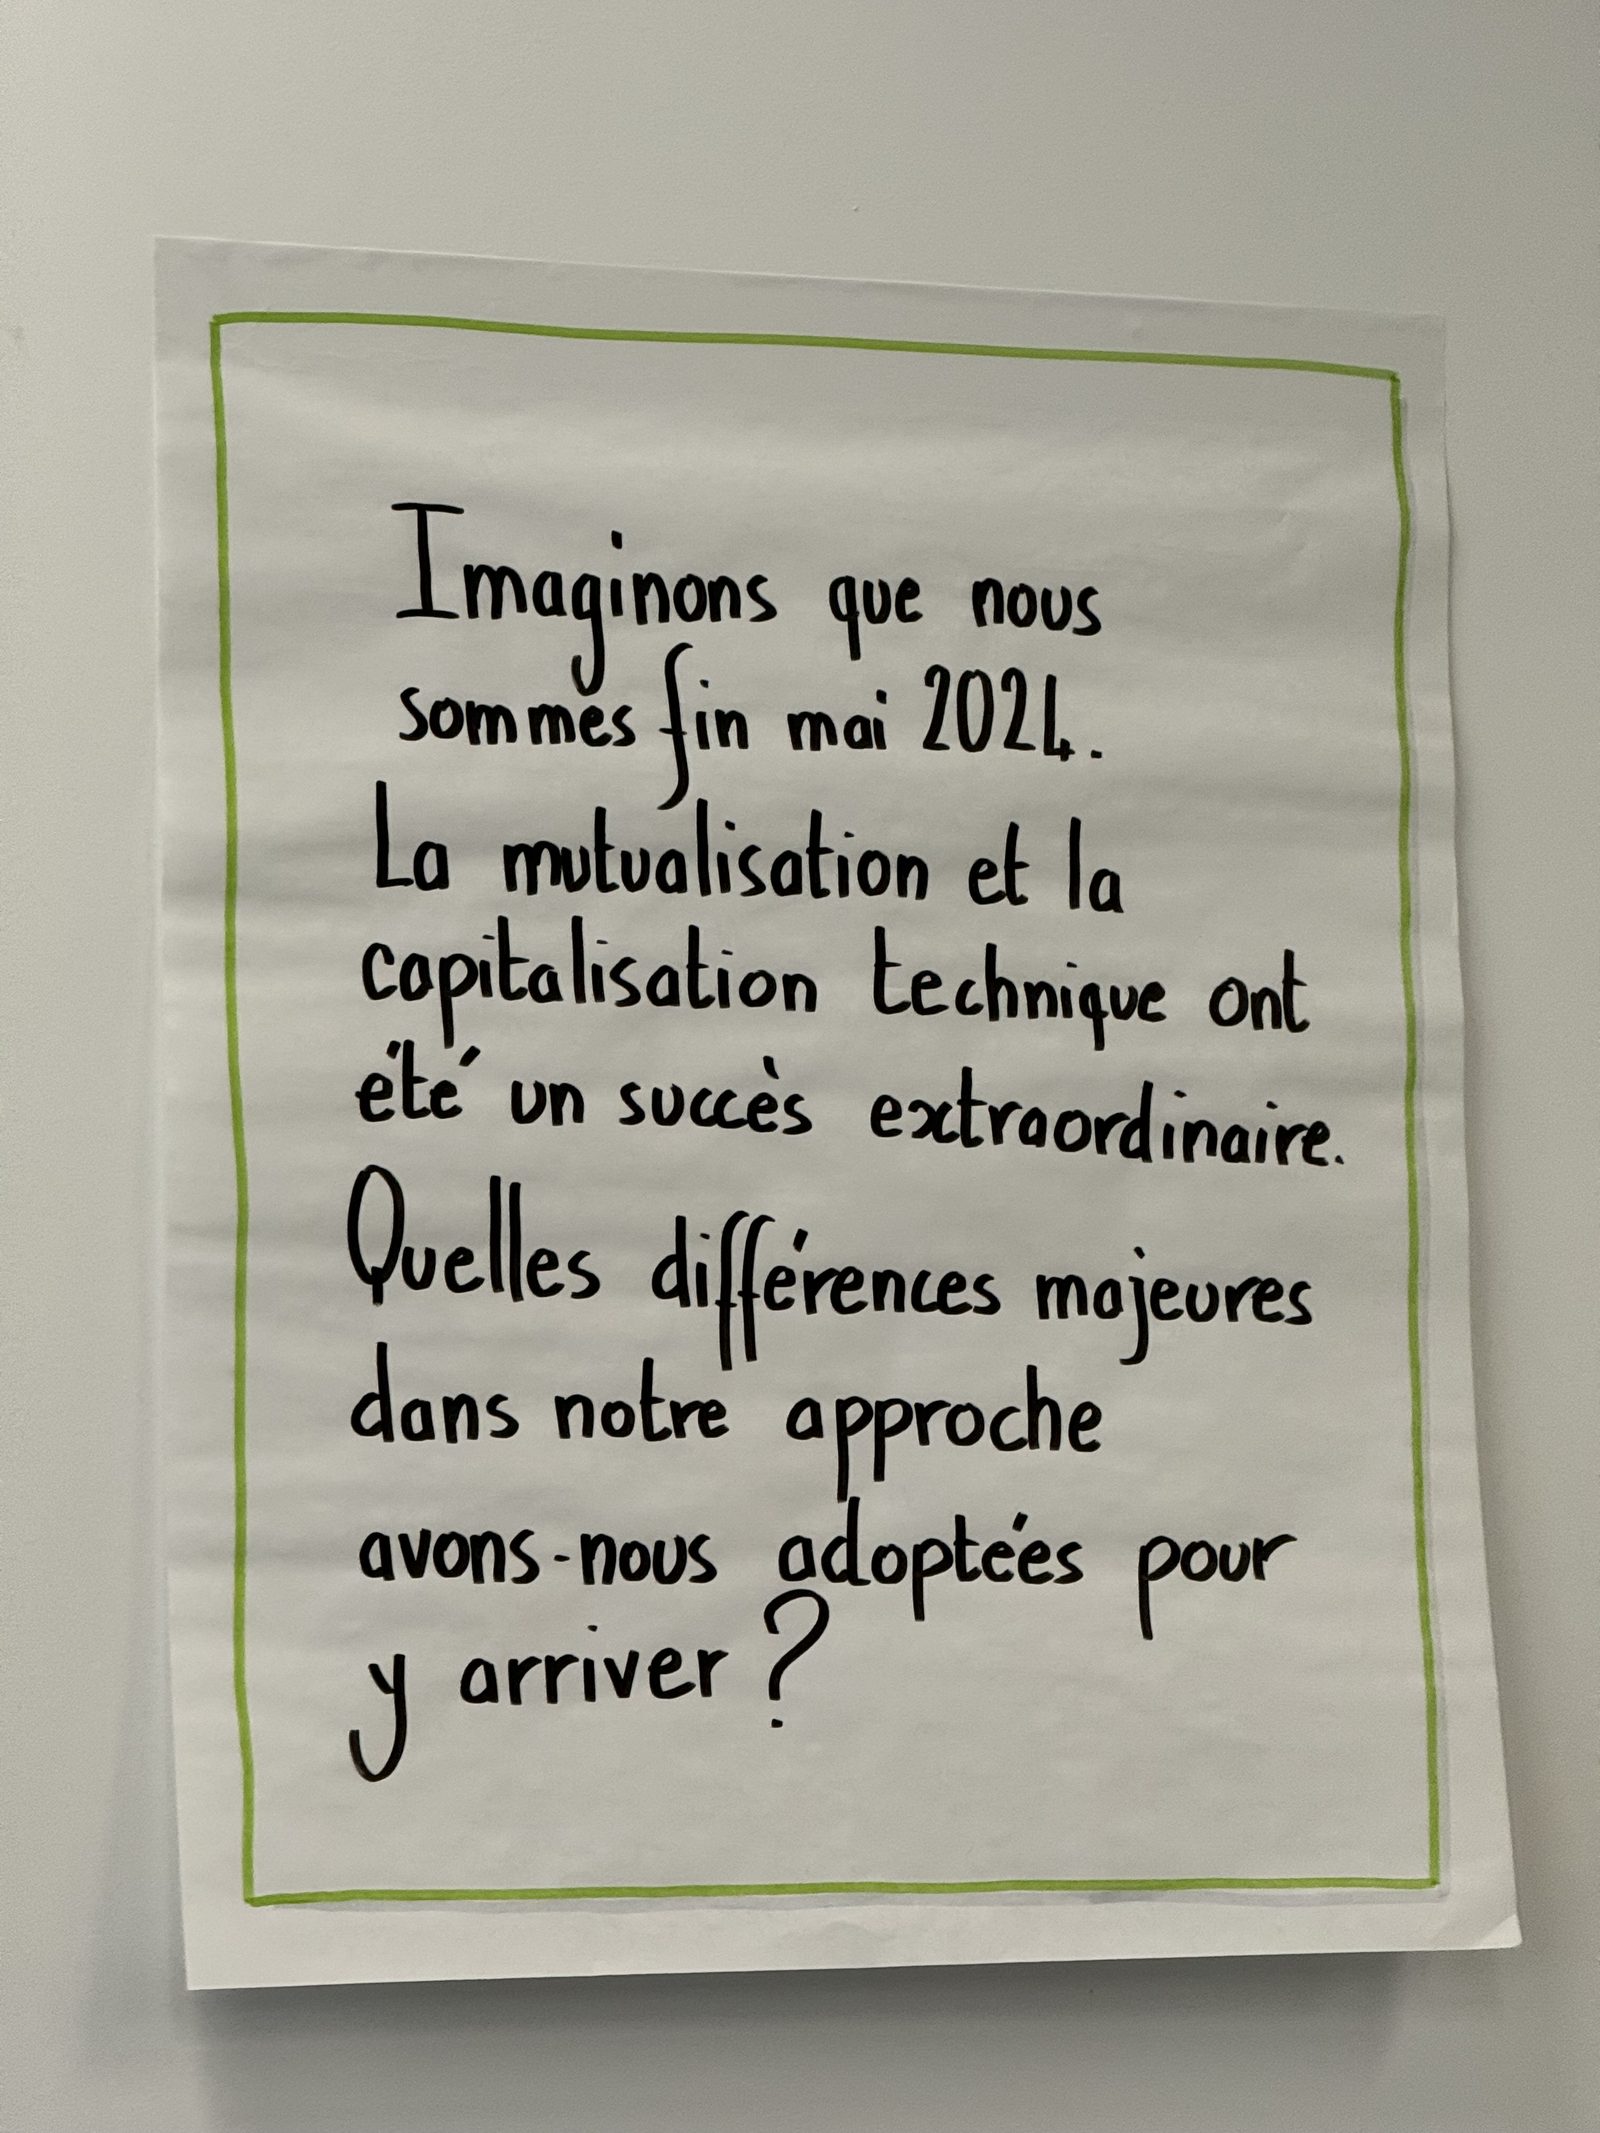 Imaginons que nous
sommes fin mai 2024.
La mutualisation et la
capitalisation technique ont
été un succès extraordinaire.
Quelles différences majeures
dans notre approche
avons-nous adoptées pour
y arriver ?